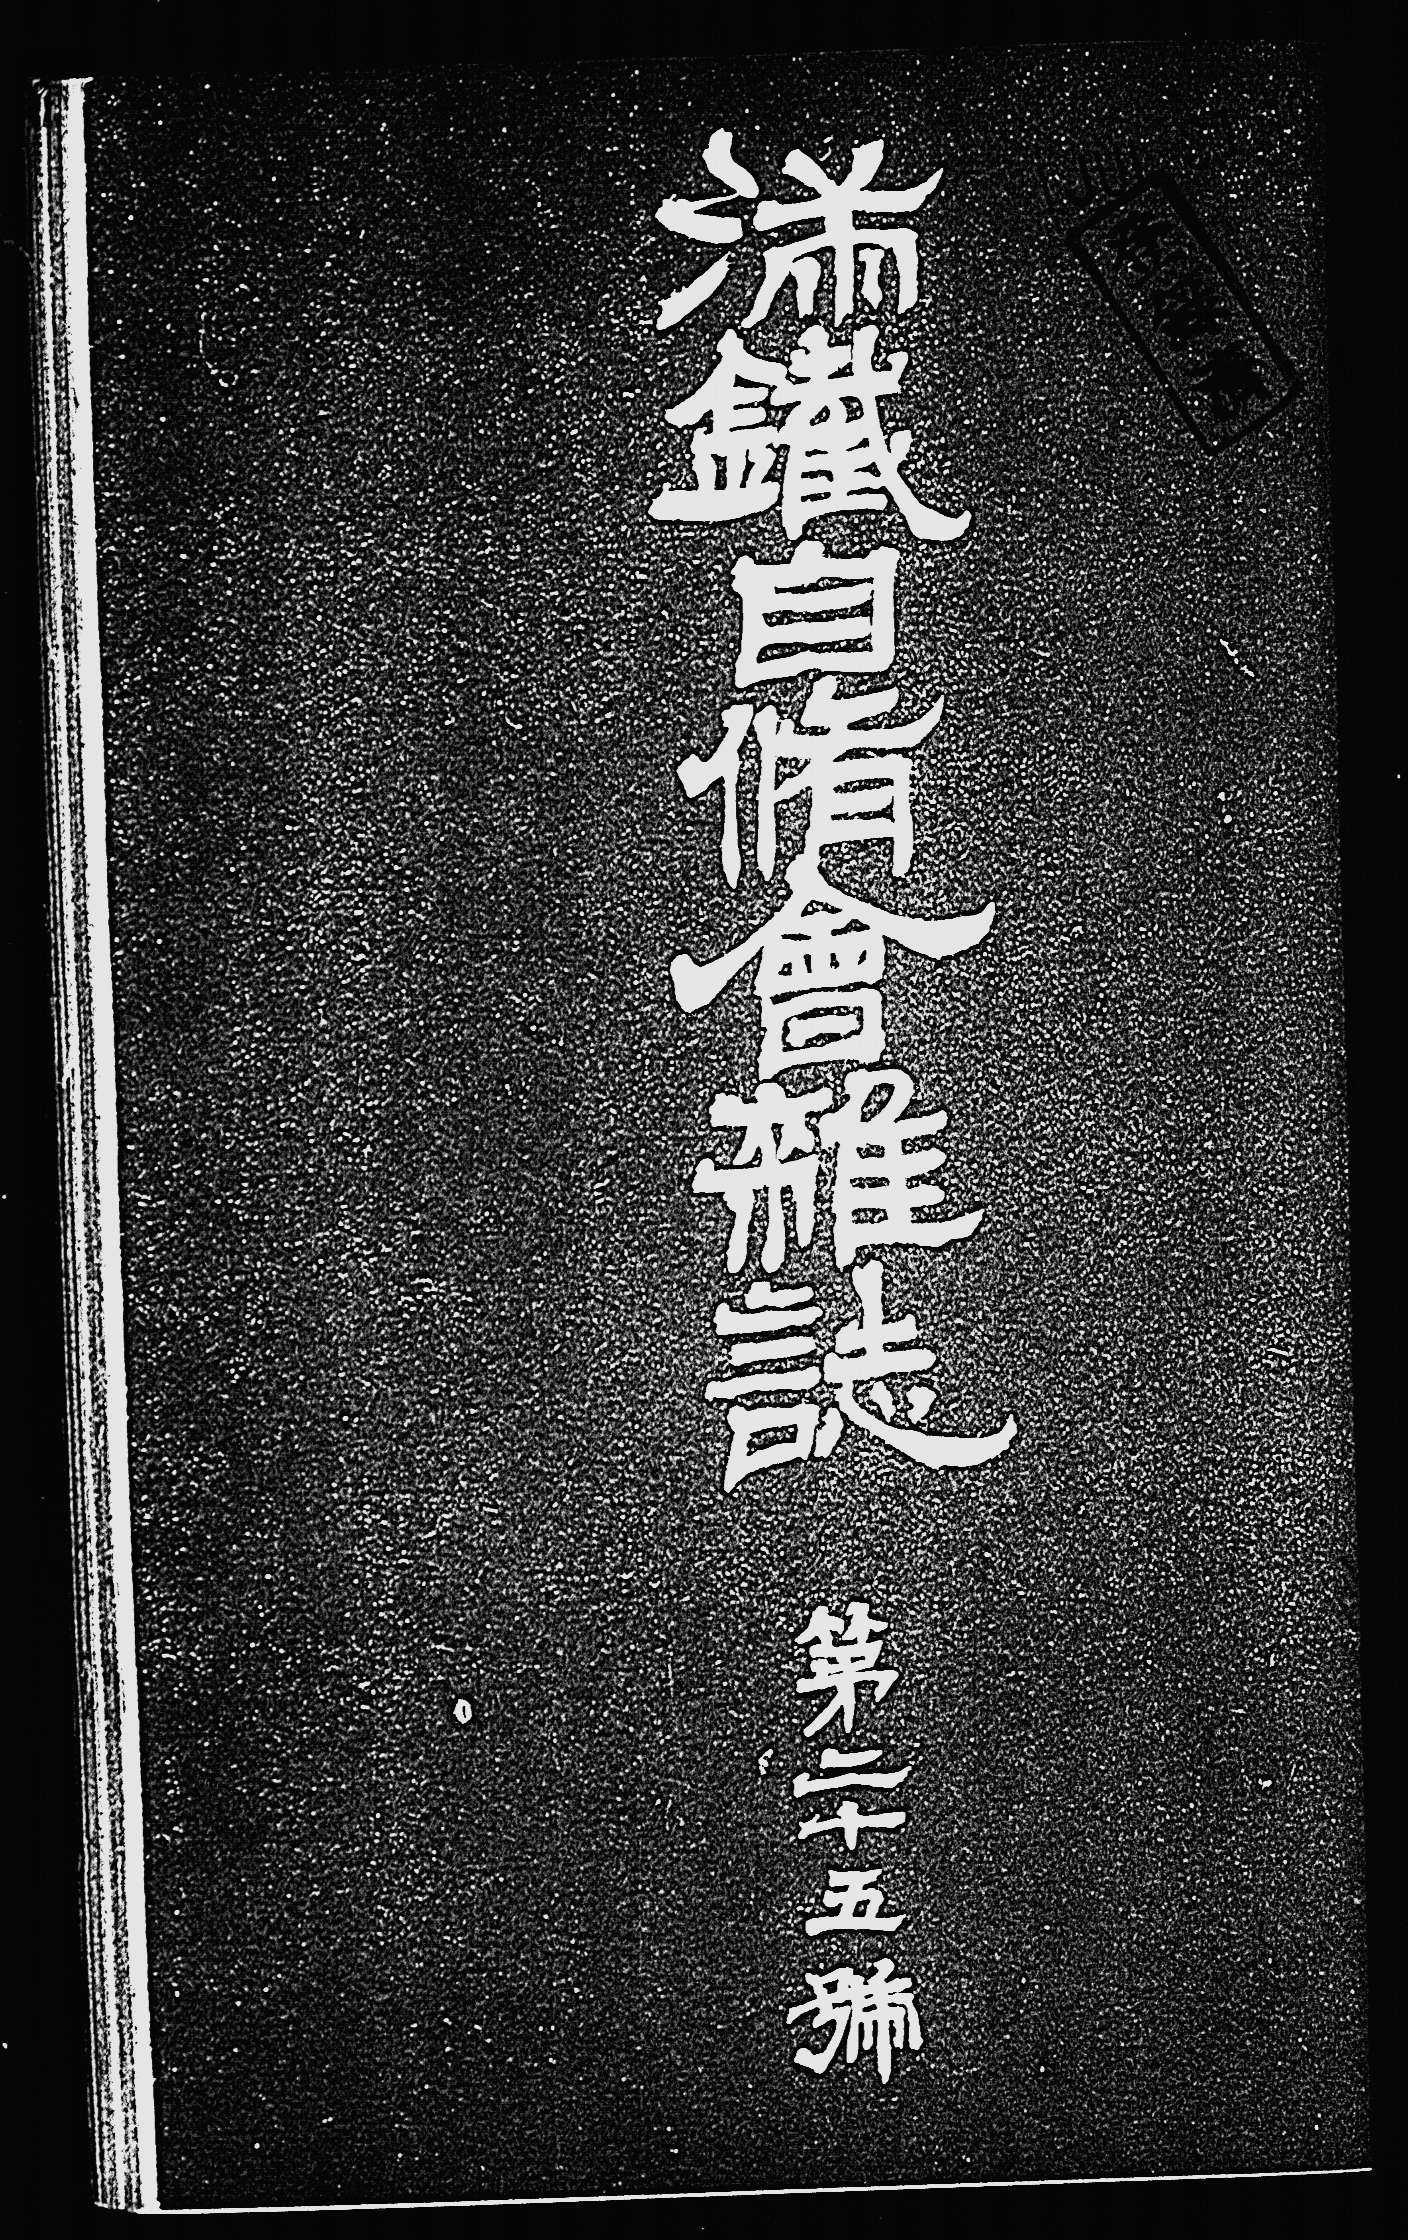 滿鐵自脩會雜誌
第二十五號